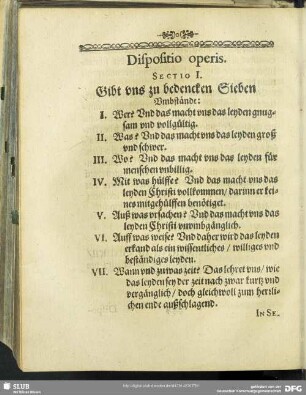 Dispositio operis.
SECTIO I.
Gibt vns zu bedencken Sieben
Vmbstände:
I. Wer? Vnd das macht vns das leyden gnug-
sam vnd vollgültig.
II. Was? Vnd das macht vns das leyden groß
vnd schwer.
III. Wo? Vnd das macht vns das leyden für
menschen vnbillig.
IV. Mit was hülffe? Vnd das macht vns das
leyden Christi vollkommen / darinn er kei-
nes mitgehülffen benötiget.
V. Auß was vrsachen? Vnd das macht vns das
leyden Christi vnvmbgänglich.
VI. Auff was weise? Vnd daher wird das leyden
erkand als ein wissentliches / williges vnd
beständiges leyden.
VII. Wann vnd zu was zeit? Das lehret vns / wie
das leyden sey der zeit nach zwar kurtz vnd
vergänglich / doch gleichwoll zum herrli-
chen ende außschlagend.
IN SE-
SLUB
DFG